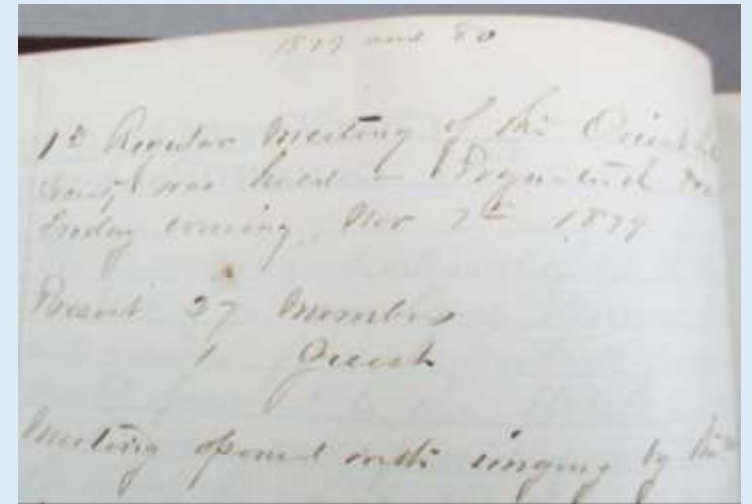 1879 and 80
1st Regular Meeting of the
was held
Friday evening, Nov 7th 1879
Present 27 Members
1 Guest
Meeting opened with singing by the